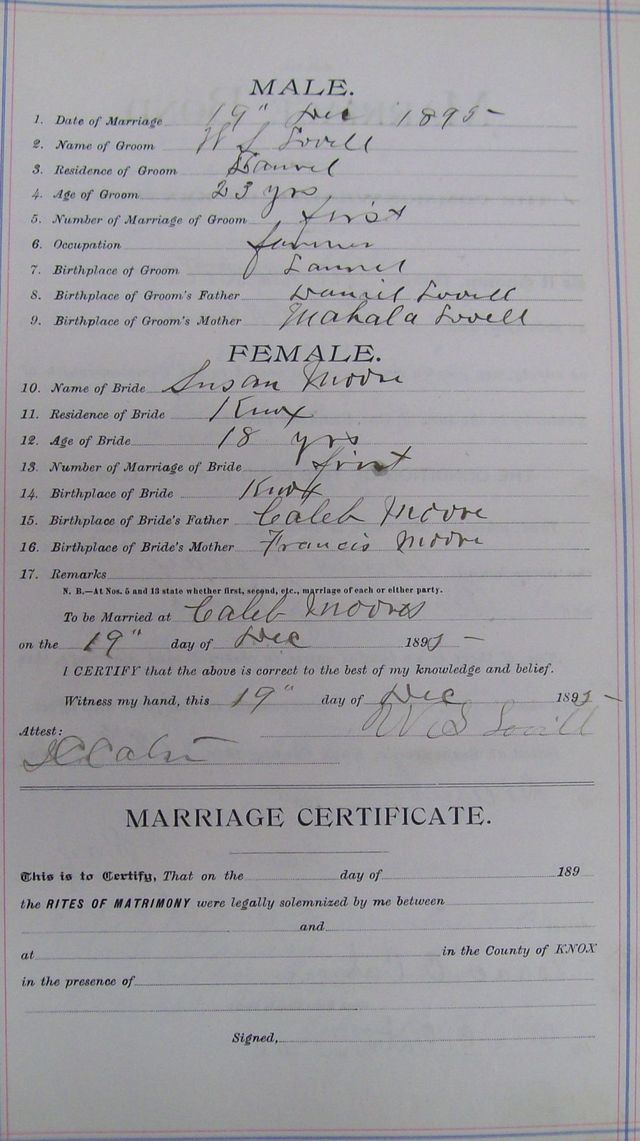 MALE.
1. Date of Marriage 19" Dec 1895
2. Name of Groom W S Lovell
3. Residence of Groom Laurel
4. Age of Groom 23 yrs
5. Number of Marriage of Groom first
6. Occupation farmer
7. Birthplace of Groom Laurel
8. Birthplace of Groom's Father Daniel Lovell
9. Birthplace of Groom's Mother Mahala Lovell
FEMALE.
10. Name of Bride Susan Moore
11. Residence of Bride Knox
12. Age of Bride 18 yrs
13. Number of Marriage of Bride first
14. Birthplace of Bride Knox
15. Birthplace of Bride's Father Caleb Moore
16. Birthplace of Bride's Mother Francis Moore
17. Remarks
N. B.—At Nos. 5 and 13 state whether first, second, etc., marriage of each or either party.
To be Married at Caleb Moores
on the 19" day of Dec 1895
I CERTIFY that the above is correct to the best of my knowledge and belief.
Witness my hand, this 19" day of Dec 1895
W S Lovell
Attest:
MARRIAGE CERTIFICATE.
This is to Certify, That on the day of 189
the RITES OF MATRIMONY were legally solemnized by me between
and
at in the County of KNOX
in the presence of
Signed,